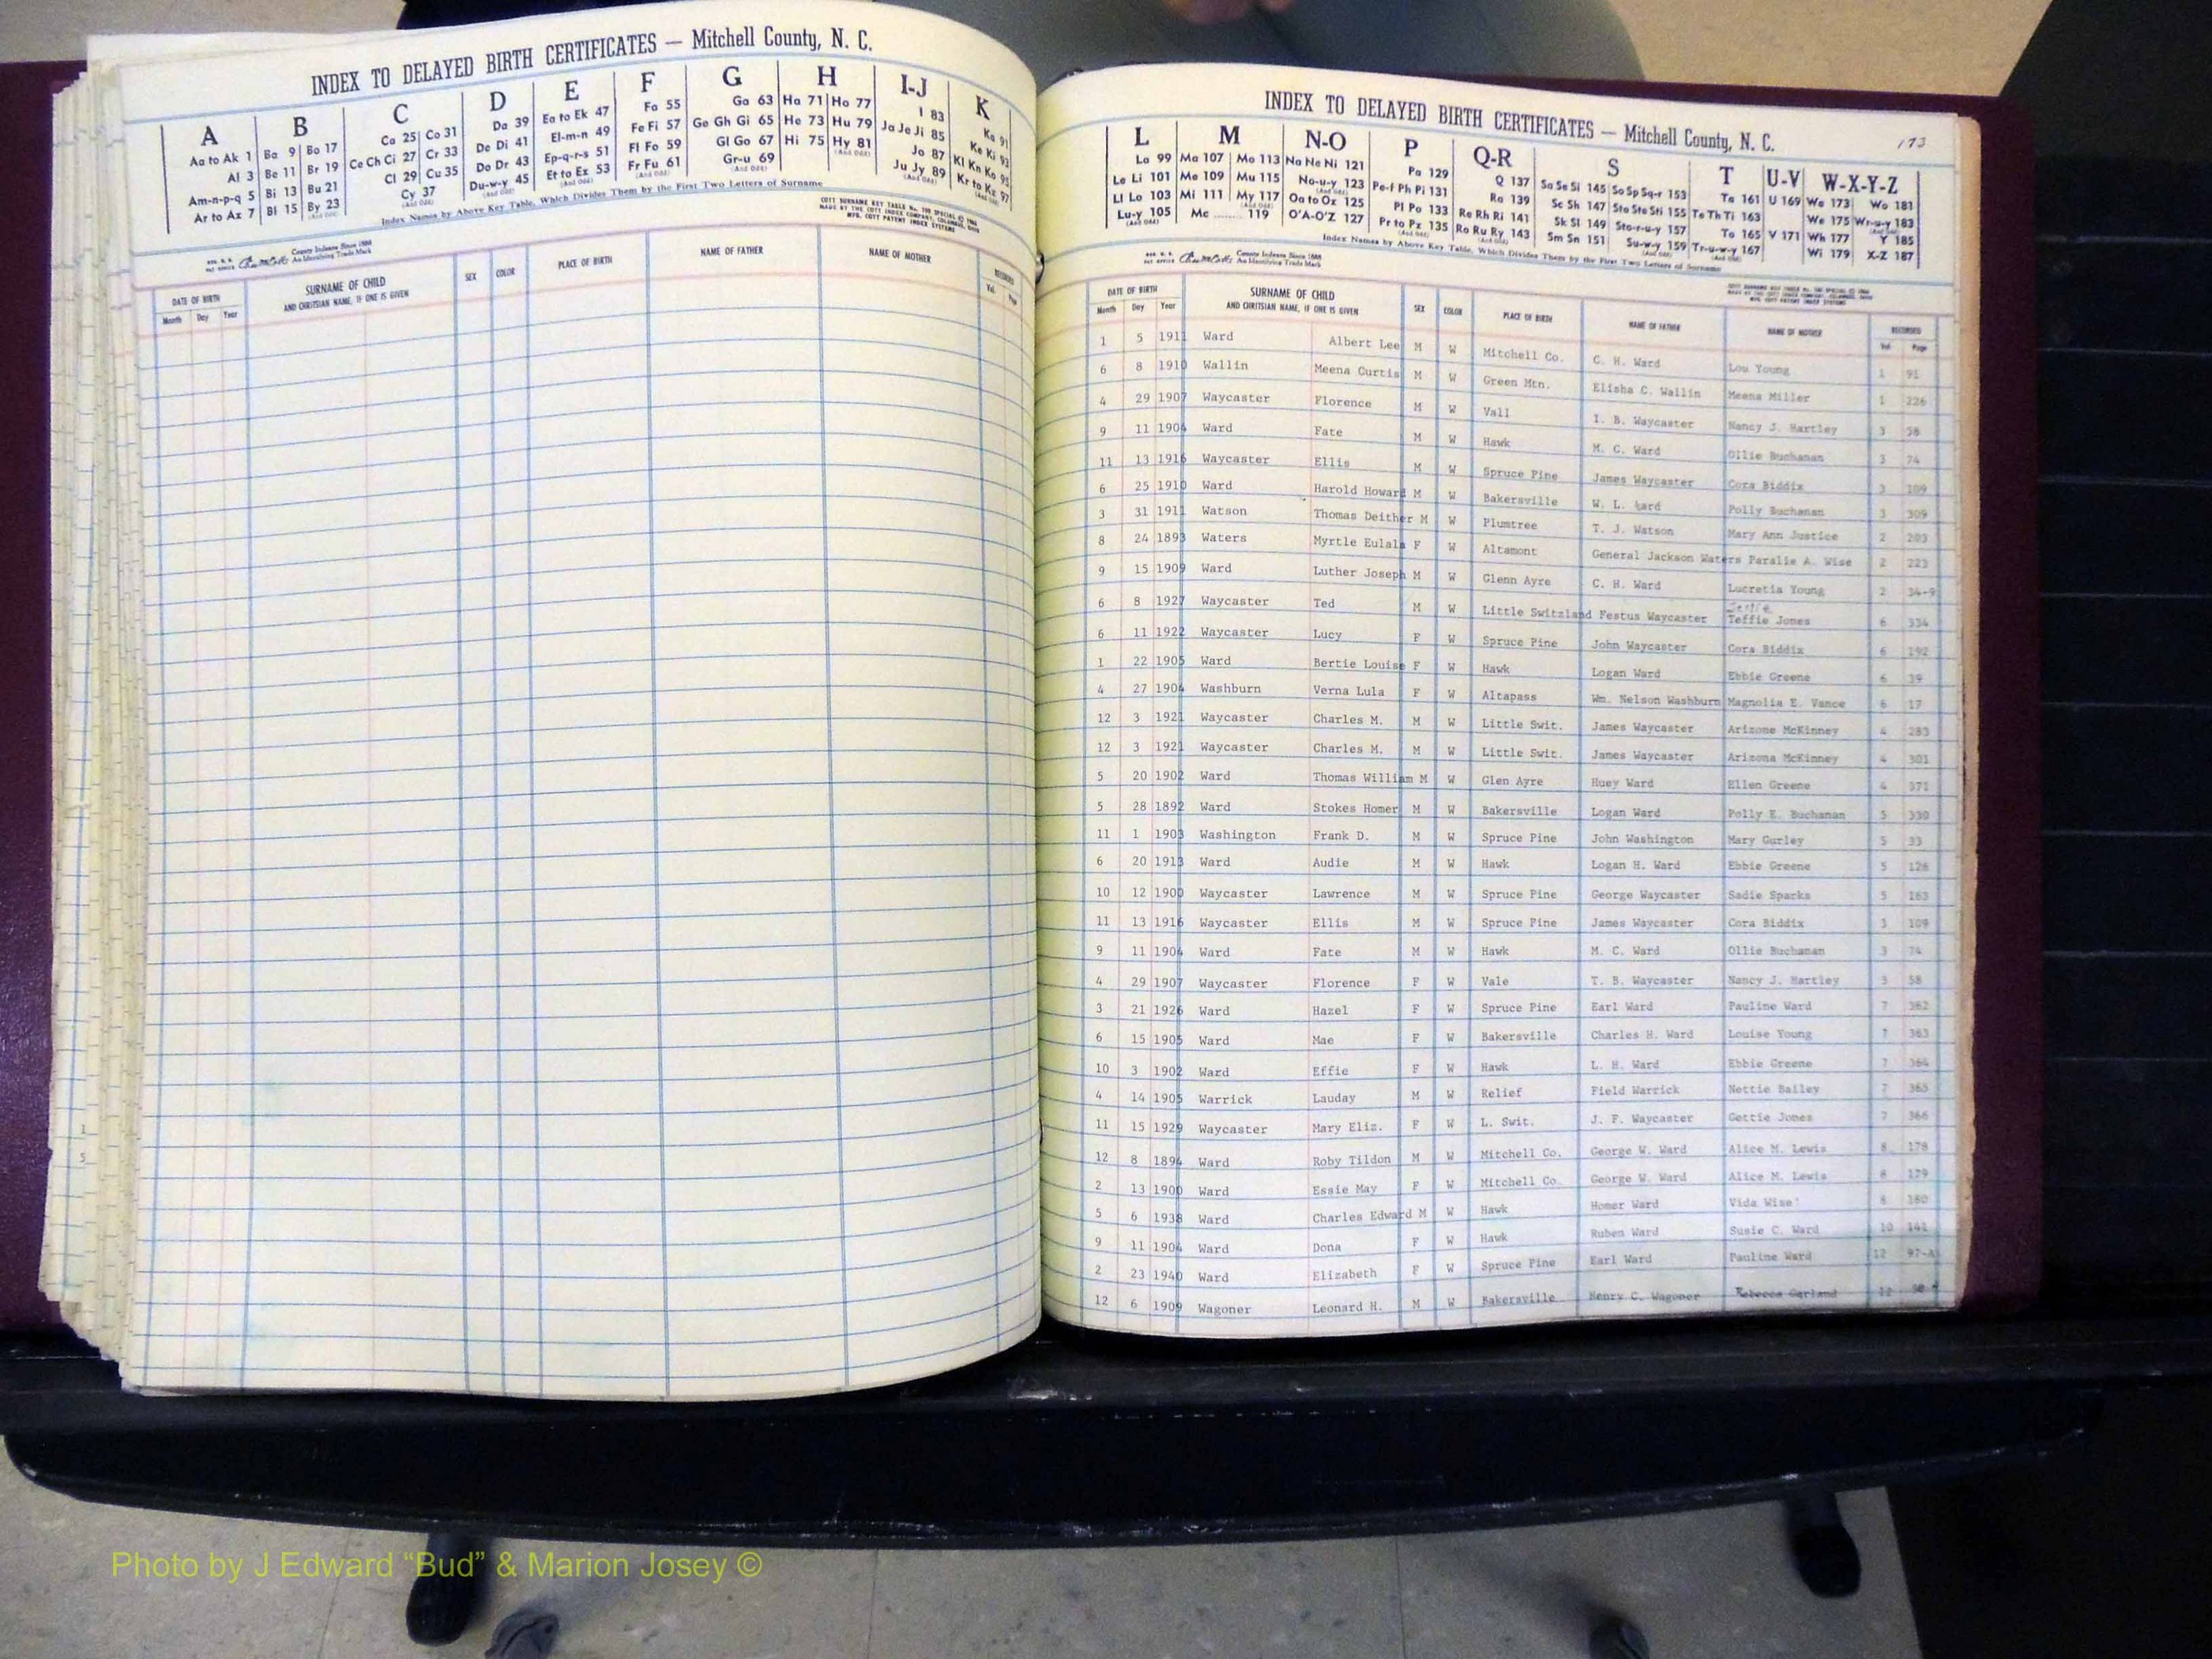 INDEX TO DELAYED BIRTH CERTIFICATES — Mitchell County, N. C.
A B C D E F G H I-J K
Aa to Ak 1 Ba 9 Bo 17 Ca 25 Co 31 Da 39 Ea to Ek 47 Fa 55 Ga 63 Ha 71 Ho 77 I 83 Ka 91
Al 3 Be 11 Br 19 Ce Ch Ci 27 Cr 33 De Di 41 El-m-n 49 Fe Fi 57 Ge Gh Gi 65 He 73 Hu 79 Ja Je Ji 85 Ke Ki 93
Am-n-p-q 5 Bi 13 Bu 21 Cl 29 Cu 35 Do Dr 43 Ep-q-r-s 51 Fl Fo 59 Gl Go 67 Hi 75 Hy 81 Jo 87 Kl Kn Ko 95
Ar to Az 7 Bl 15 By 23 Cy 37 Du-w-y 45 Et to Ez 53 Fr Fu 61 Gr-u 69 Ju Jy 89 Kr to Kz 97
Index Names by Above Key Table, Which Divides Them by the First Two Letters of Surname
COTT SURNAME KEY TABLE
County Indexes Since 1888
An Identifying Trade Mark
DATE OF BIRTH SURNAME OF CHILD SEX COLOR PLACE OF BIRTH NAME OF FATHER NAME OF MOTHER RECORDED
Month Day Year AND CHRITSIAN NAME, IF ONE IS GIVEN Vol. Page
1
5
INDEX TO DELAYED BIRTH CERTIFICATES — Mitchell County, N. C.
173
L M N-O P Q-R S T U-V W-X-Y-Z
La 99 Ma 107 Mo 113 Na Ne Ni 121 Pa 129 Q 137 Sa Se Si 145 So Sp Sq-r 153 Ta 161 U 169 Wa 173 Wo 181
Le Li 101 Me 109 Mu 115 No-u-y 123 Pe-f Ph Pi 131 Ra 139 Sc Sh 147 Sta Ste Sti 155 Te Th Ti 163 We 175 Wr-u-y 183
Ll Lo 103 Mi 111 My 117 Oa to Oz 125 Pl Po 133 Re Rh Ri 141 Sk Sl 149 Sto-r-u-y 157 To 165 V 171 Wh 177 Y 185
Lu-y 105 Mc 119 O'A-O'Z 127 Pr to Pz 135 Ro Ru Ry 143 Sm Sn 151 Su-w-y 159 Tr-u-w-y 167 Wi 179 X-Z 187
Index Names by Above Key Table, Which Divides Them by the First Two Letters of Surname
County Indexes Since 1888
An Identifying Trade Mark
DATE OF BIRTH SURNAME OF CHILD SEX COLOR PLACE OF BIRTH NAME OF FATHER NAME OF MOTHER RECORDED
Month Day Year AND CHRITSIAN NAME, IF ONE IS GIVEN Vol. Page
1 5 1911 Ward Albert Lee M W Mitchell Co. C. H. Ward Lou Young 1 91
6 8 1910 Wallin Meena Curtis M W Green Mtn. Elisha C. Wallin Meena Miller 1 226
4 29 1907 Waycaster Florence M W Vall I. B. Waycaster Nancy J. Hartley 3 58
9 11 1904 Ward Fate M W Hawk M. C. Ward Ollie Buchanan 3 74
11 13 1916 Waycaster Ellis M W Spruce Pine James Waycaster Cora Biddix 3 109
6 25 1910 Ward Harold Howard M W Bakersville W. L. Ward Polly Buchanan 3 309
3 31 1911 Watson Thomas Deither M W Plumtree T. J. Watson Mary Ann Justice 2 203
8 24 1893 Waters Myrtle Eulala F W Altamont General Jackson Waters Paralie A. Wise 2 223
9 15 1909 Ward Luther Joseph M W Glenn Ayre C. H. Ward Lucretia Young 2 34-9
6 8 1927 Waycaster Ted M W Little Switzland Festus Waycaster Teffie Jones 6 334
6 11 1922 Waycaster Lucy F W Spruce Pine John Waycaster Cora Biddix 6 192
1 22 1905 Ward Bertie Louise F W Hawk Logan Ward Ebbie Greene 6 39
4 27 1904 Washburn Verna Lula F W Altapass Wm. Nelson Washburn Magnolia E. Vance 6 17
12 3 1921 Waycaster Charles M. M W Little Swit. James Waycaster Arizone McKinney 4 283
12 3 1921 Waycaster Charles M. M W Little Swit. James Waycaster Arizona McKinney 4 301
5 20 1902 Ward Thomas William M W Glen Ayre Huey Ward Ellen Greene 4 371
5 28 1892 Ward Stokes Homer M W Bakersville Logan Ward Polly E. Buchanan 5 330
11 1 1903 Washington Frank D. M W Spruce Pine John Washington Mary Gurley 5 33
6 20 1913 Ward Audie M W Hawk Logan H. Ward Ebbie Greene 5 126
10 12 1900 Waycaster Lawrence M W Spruce Pine George Waycaster Sadie Sparks 5 163
11 13 1916 Waycaster Ellis M W Spruce Pine James Waycaster Cora Biddix 3 109
9 11 1904 Ward Fate M W Hawk M. C. Ward Ollie Buchanan 3 74
4 29 1907 Waycaster Florence F W Vale T. B. Waycaster Nancy J. Hartley 3 58
3 21 1926 Ward Hazel F W Spruce Pine Earl Ward Pauline Ward 7 362
6 15 1905 Ward Mae F W Bakersville Charles H. Ward Louise Young 7 363
10 3 1902 Ward Effie F W Hawk L. H. Ward Ebbie Greene 7 364
4 14 1905 Warrick Lauday M W Relief Field Warrick Nettie Bailey 7 365
11 15 1929 Waycaster Mary Eliz. F W L. Swit. J. F. Waycaster Gettie Jones 7 366
12 8 1894 Ward Roby Tildon M W Mitchell Co. George W. Ward Alice M. Lewis 8 178
2 13 1900 Ward Essie May F W Mitchell Co. George W. Ward Alice M. Lewis 8 179
5 6 1938 Ward Charles Edward M W Hawk Homer Ward Vida Wise 8 180
9 11 1904 Ward Dona F W Hawk Ruben Ward Susie C. Ward 10 141
2 23 1940 Ward Elizabeth F W Spruce Pine Earl Ward Pauline Ward 12 97-A
12 6 1909 Wagoner Leonard H. M W Bakersville Henry C. Wagoner Rebecca Garland 12
Photo by J Edward “Bud” & Marion Josey ©